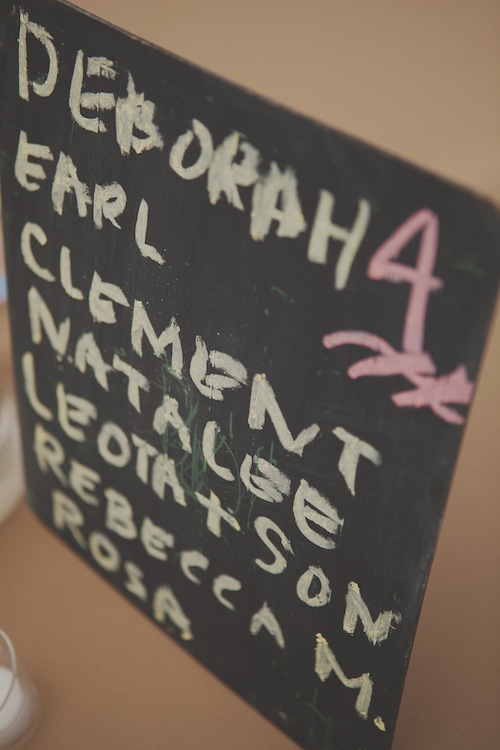 DEBORAH 4
EARL
CLEMENT
NATALEE
LEOTA + SON
REBECCA M.
ROSA